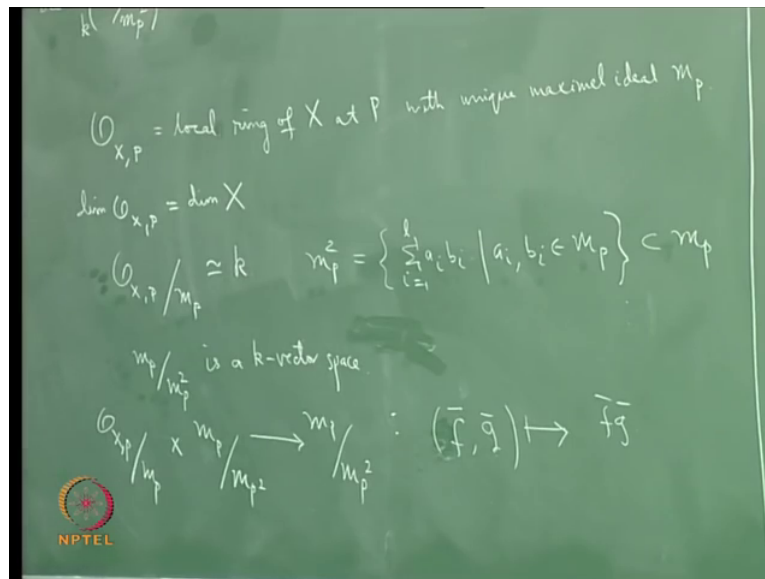 k(m_p/m_p^2)
O_{X,P} = local ring of X at P with unique maximal ideal m_p.
dim O_{X,P} = dim X
O_{X,P}/m_p ≃ k m_p^2 = { Σ_{i=1}^{l} a_i b_i | a_i, b_i ∈ m_p } ⊂ m_p
m_p/m_p^2 is a k-vector space.
O_{X,P}/m_p × m_p/m_p^2 ⟶ m_p/m_p^2 : (f̄, ḡ) ⟼ \overline{fg}
NPTEL